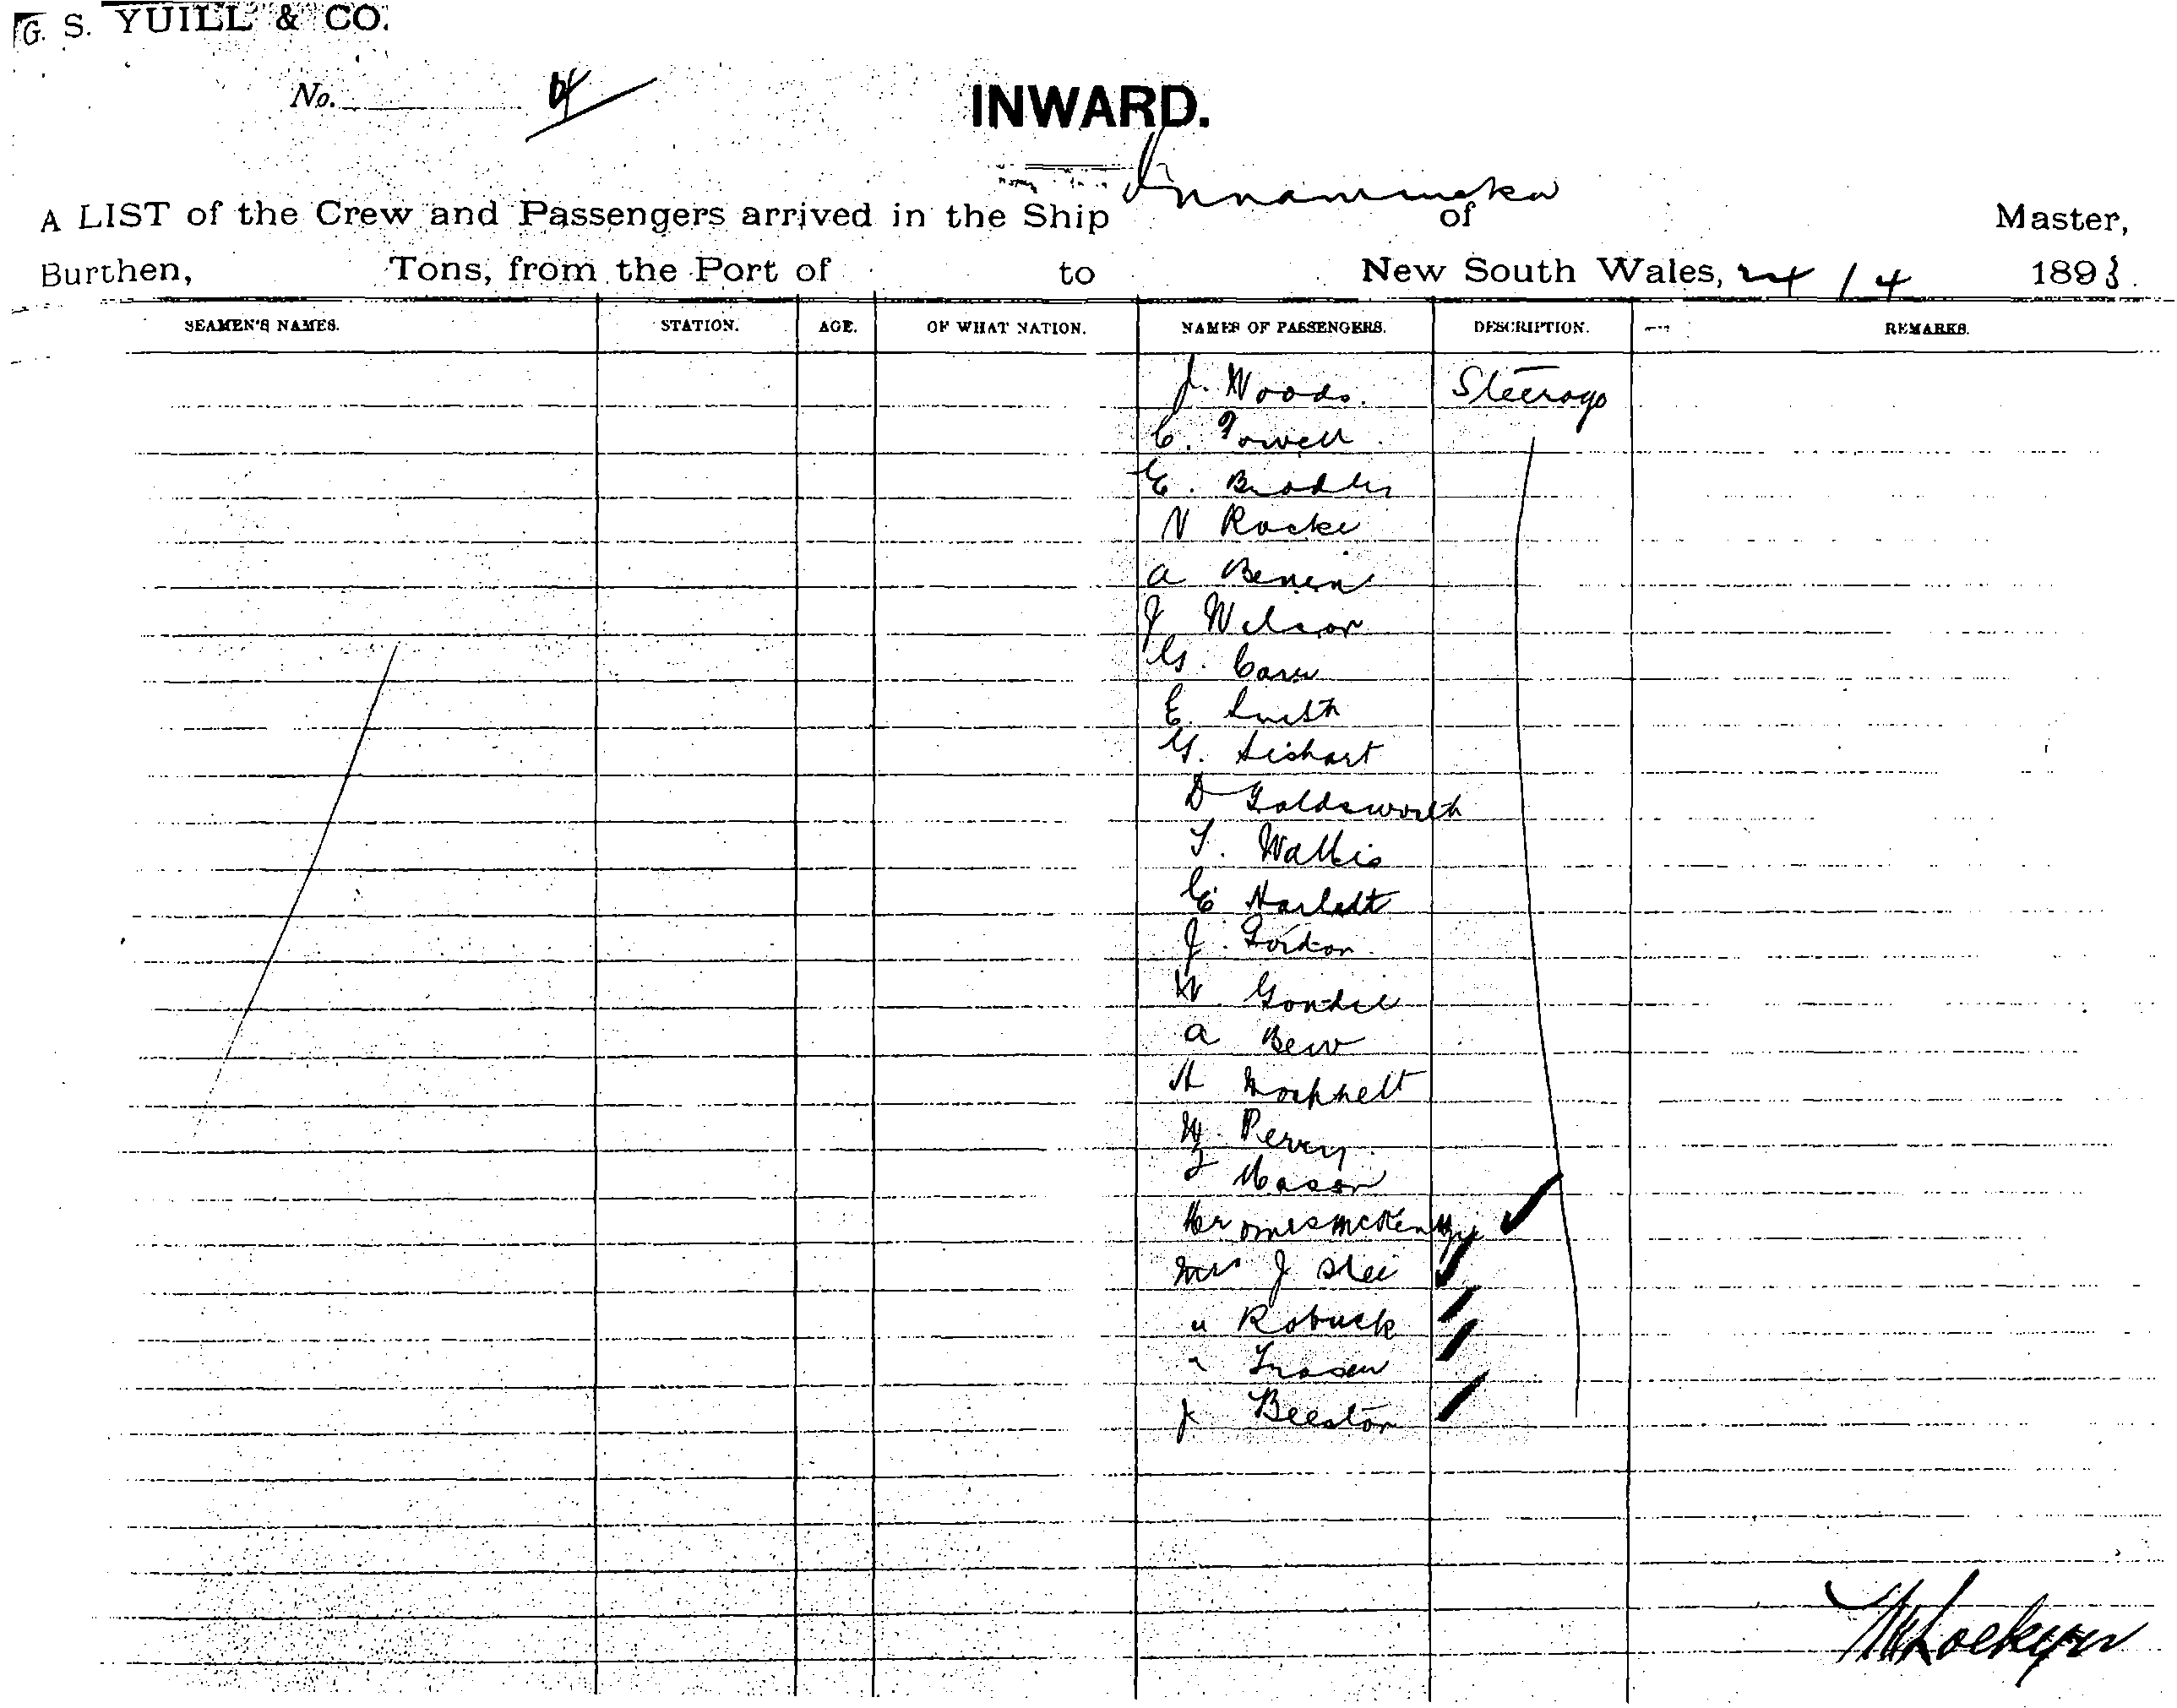 G. S. YUILL & CO.
No. 4
INWARD.
A LIST of the Crew and Passengers arrived in the Ship Innamincka of Master,
Burthen, Tons, from the Port of to New South Wales, 24/4 1893.
SEAMEN'S NAMES. STATION. AGE. OF WHAT NATION. NAMES OF PASSENGERS. DESCRIPTION. REMARKS.
J. Woods. Steerage
C. Powell
E. Bradley
N Rocke
A Benen
J Wilson
G. Carr
E. Smith
G. Lishart
D Goldsworth
T. Wallis
E Harlett
J. Gordon
W. Goudie
A Bew
A
W. Perry
J Mason
Mr & Mrs McKenzie
Mrs J Slee
" Robuck
" Fraser
J. Beeston
Lockyer